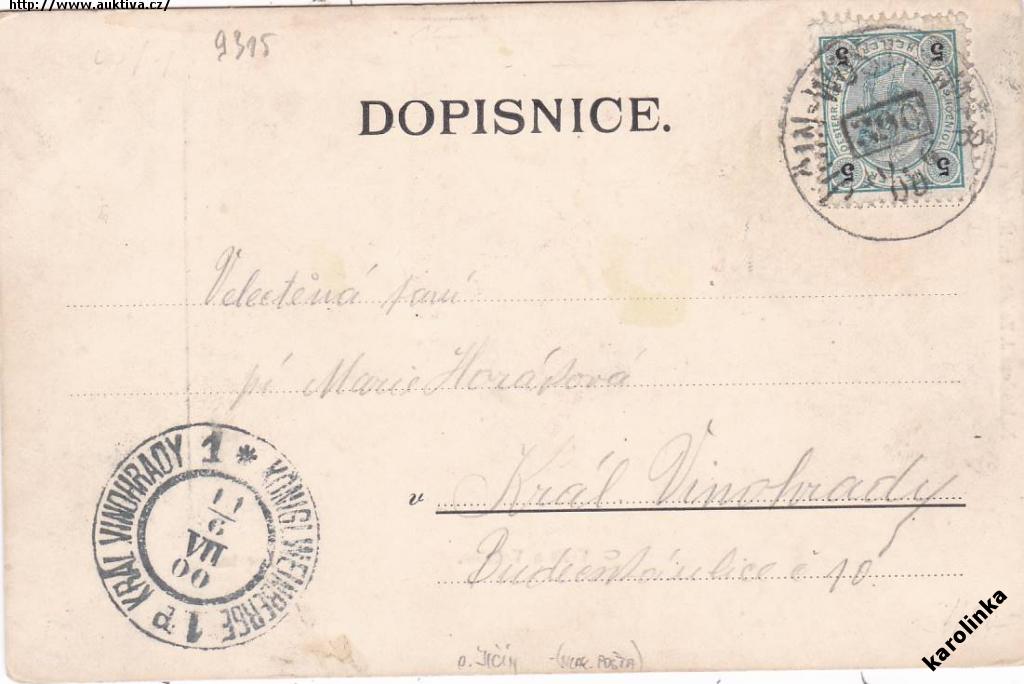 http://www.auktiva.cz/
9315
DOPISNICE.
5 5
390
5 5
00
Velectěná paní
pí Marie Horáková
v Král. Vinohrady
ulice č 10
KRÁL VINOHRADY 1 * KÖNIGL WEINBERGE 1
11
6
VII
00
o. Jičín (vlak. pošta)
karolinka